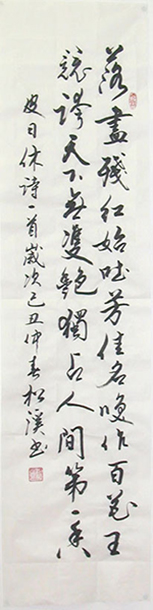 落盡殘紅始吐芳佳名喚作百花王
競誇天下無雙艷獨占人間第一香
皮日休詩一首歲次己丑仲春松溪書